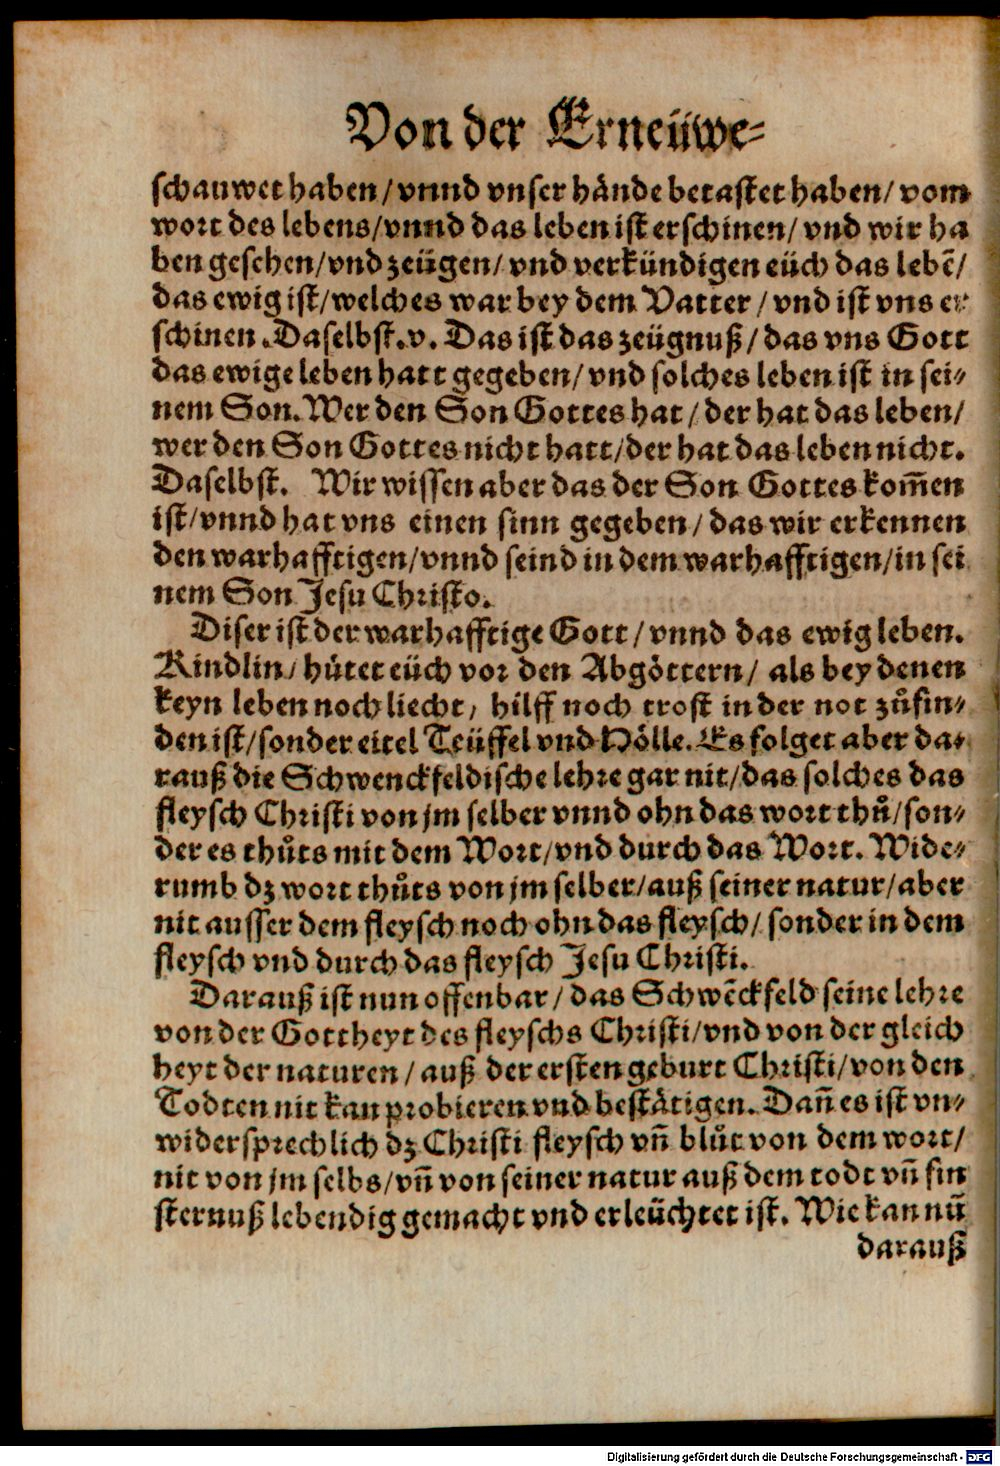 Von der Erneüwe-
schauwet haben/vnnd vnser hände betastet haben/vom
wort des lebens/vnnd das leben ist erschinen/vnd wir ha
ben gesehen/vnd zeügen/vnd verkündigen eüch das lebē/
das ewig ist/welches war bey dem Vatter/vnd ist vns er
schinen. Daselbst.v. Das ist das zeügnuß/das vns Gott
das ewige leben hatt gegeben/vnd solches leben ist in sei-
nem Son. Wer den Son Gottes hat/der hat das leben/
wer den Son Gottes nicht hatt/der hat das leben nicht.
Daselbst. Wir wissen aber das der Son Gottes kom̄en
ist/vnnd hat vns einen sinn gegeben/das wir erkennen
den warhafftigen/vnnd seind in dem warhafftigen/in sei
nem Son Jesu Christo.
Diser ist der warhafftige Gott/vnnd das ewig leben.
Kindlin/hůtet eüch vor den Abgöttern/als bey denen
keyn leben noch liecht, hilff noch trost in der not zůfin-
den ist/sonder eitel Teüffel vnd Hölle. Es folget aber da-
rauß die Schwenckfeldische lehre gar nit/das solches das
fleysch Christi von jm selber vnnd ohn das wort thů/son-
der es thůts mit dem Wort/vnd durch das Wort. Wide-
rumb dz wort thůts von jm selber/auß seiner natur/aber
nit ausser dem fleysch noch ohn das fleysch/sonder in dem
fleysch vnd durch das fleysch Jesu Christi.
Darauß ist nun offenbar/das Schwēckfeld seine lehre
von der Gottheyt des fleyschs Christi/vnd von der gleich
heyt der naturen/auß der ersten geburt Christi/von den
Todten nit kan probieren vnd bestätigen. Dan̄ es ist vn-
widersprechlich dz Christi fleysch vn̄ blůt von dem wort/
nit von jm selbs/vn̄ von seiner natur auß dem todt vn̄ fin
sternuß lebendig gemacht vnd erleüchtet ist. Wie kan nū
darauß
Digitalisierung gefördert durch die Deutsche Forschungsgemeinschaft - DFG